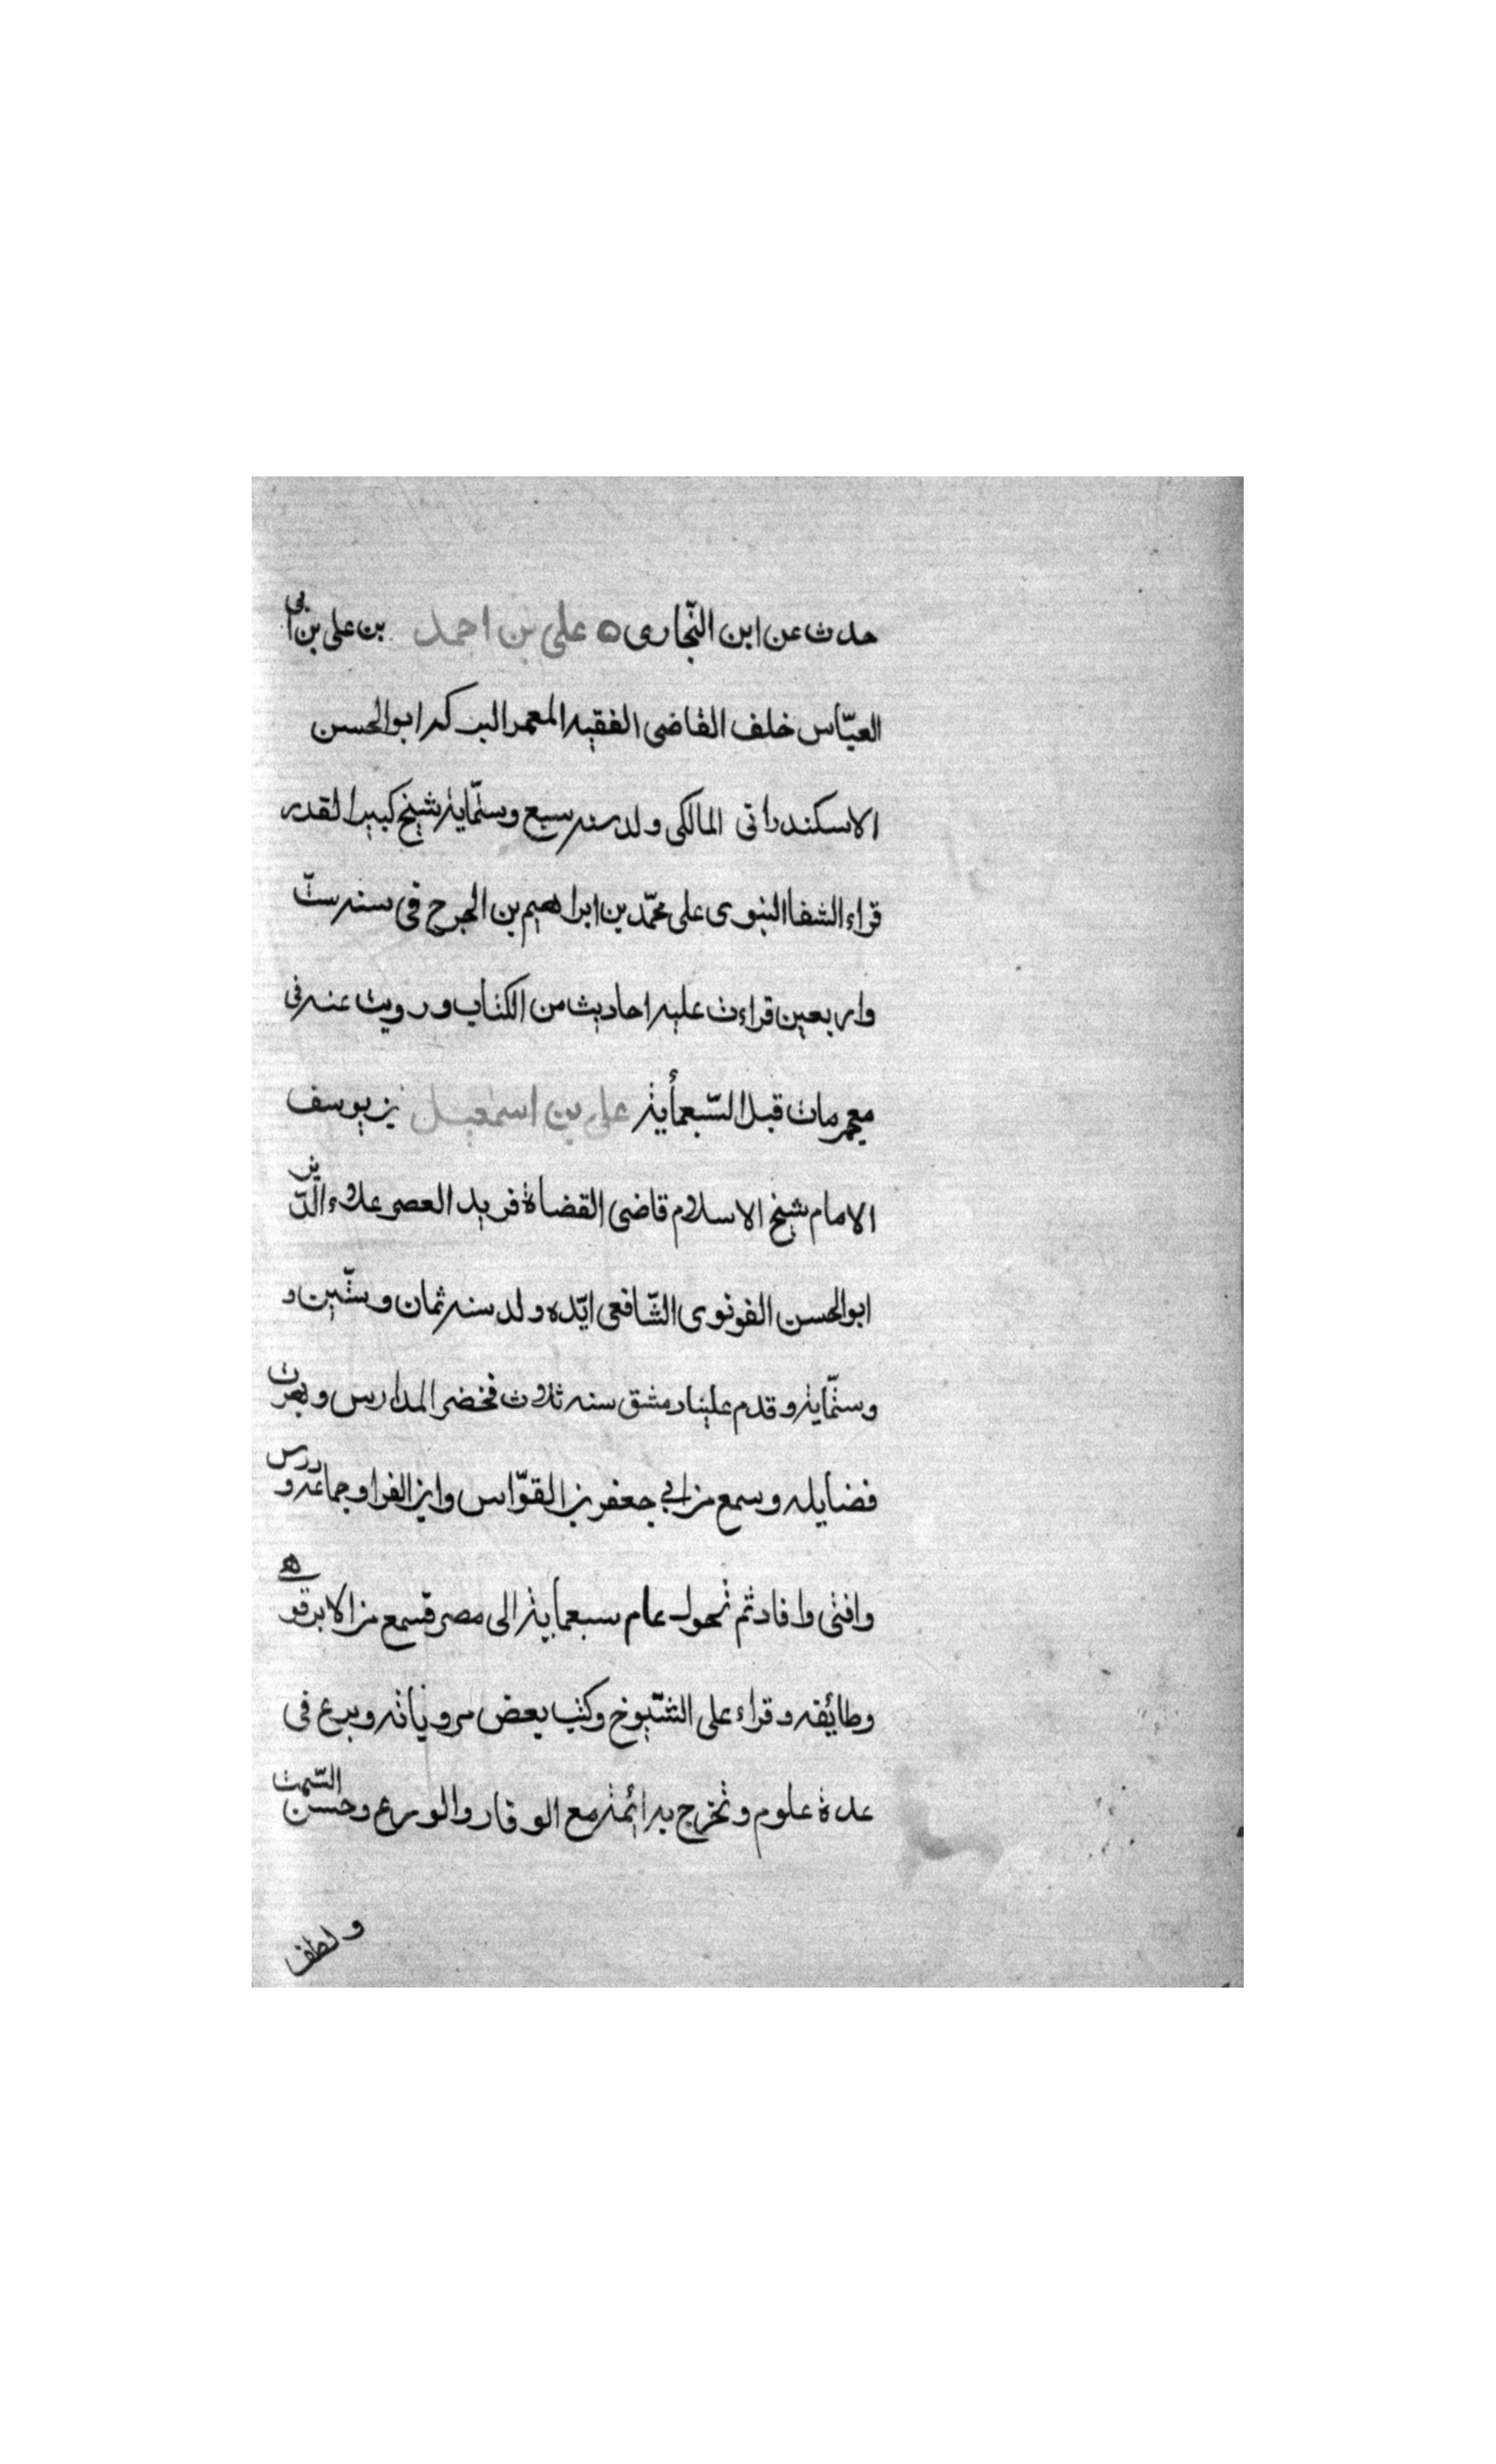 حدث عن ابن النّجارى ٥ على بن احمد بن على بن ابى
العبّاس خلف القاضى الفقيه المعمر ابوالحسن
الاسكندرانى المالكى ولد سنه سبع وستّماية شيخ كبير القدر
قراء الشفا النبوى على محمّد بن ابراهيم بن الجرج فى سنه ستّ
واربعين قراءت عليه احاديث من الكتاب ورويت عنه فى
معجمى مات قبل السّبعمأية على بن اسمعيل بن يوسف
الامام شيخ الاسلام قاضى القضاة فريد العصر علاء الدّين
ابوالحسن القونوى الشّافعى ايّده ولد سنه ثمان وستّين و
وستّماية وقدم علينا دمشق سنه ثلاث فحضر المدارس وبهرت
فضايله وسمع من ابي جعفر بن القوّاس وابن الفرا وجماعه ودرس
وافتى وافاد ثم تحول عام سبعماية الى مصر فسمع من الابرقوهي
وطائفه وقراء على الشّيوخ وكتب بعض مروياته وبرع فى
عدة علوم وتخرج به ائمة مع الوقار والورع وحسن السّمت
ولطف